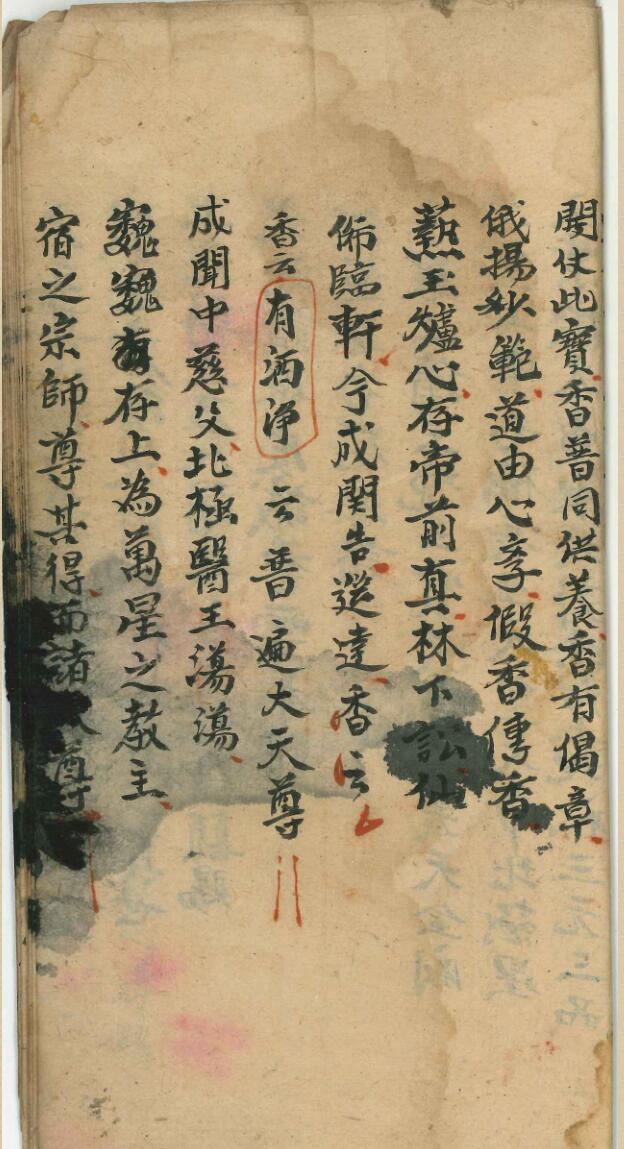 閔仗此寶香普同供養香有偈章
俄揚妙範道由心享假香傳香
爇玉爐心存帝前真林下訟仙
伂臨軒今成関告逕達香云
香云有洒淨云普遍大天尊
成聞中慈父北極醫王湯湯
巍巍有存上為萬星之教主
宿之宗師尊其得而諸尊